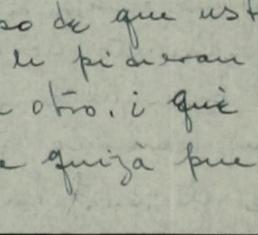 so de que ust
le pidieran
otro. i què
e quizà pue